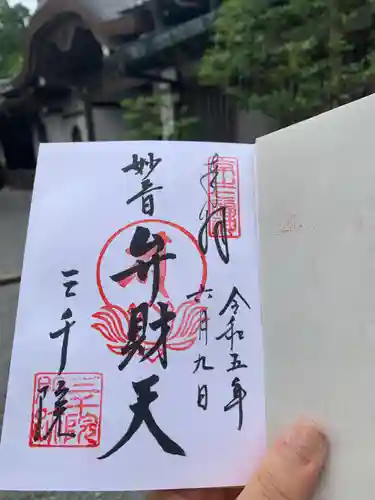 奉拝
令和五年
六月九日
妙音
弁財天
三千院